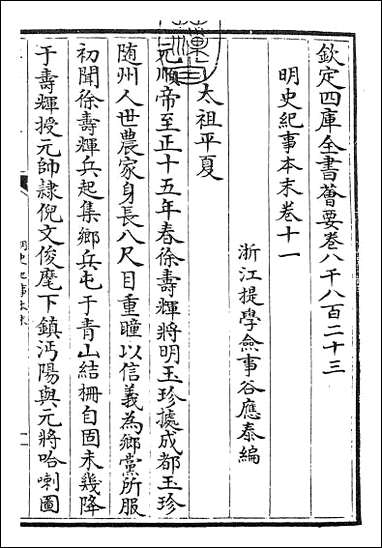 欽定四庫全書薈要卷八千八百二十三
明史紀事本末卷十一
浙江提學僉事谷應泰編
太祖平夏
元順帝至正十五年春徐壽輝將明玉珍據成都玉珍
随州人世農家身長八尺目重瞳以信義為鄉黨所服
初聞徐壽輝兵起集鄉兵屯于青山結柵自固未幾降
于壽輝授元帥隷倪文俊麾下鎮沔陽與元將哈喇圖